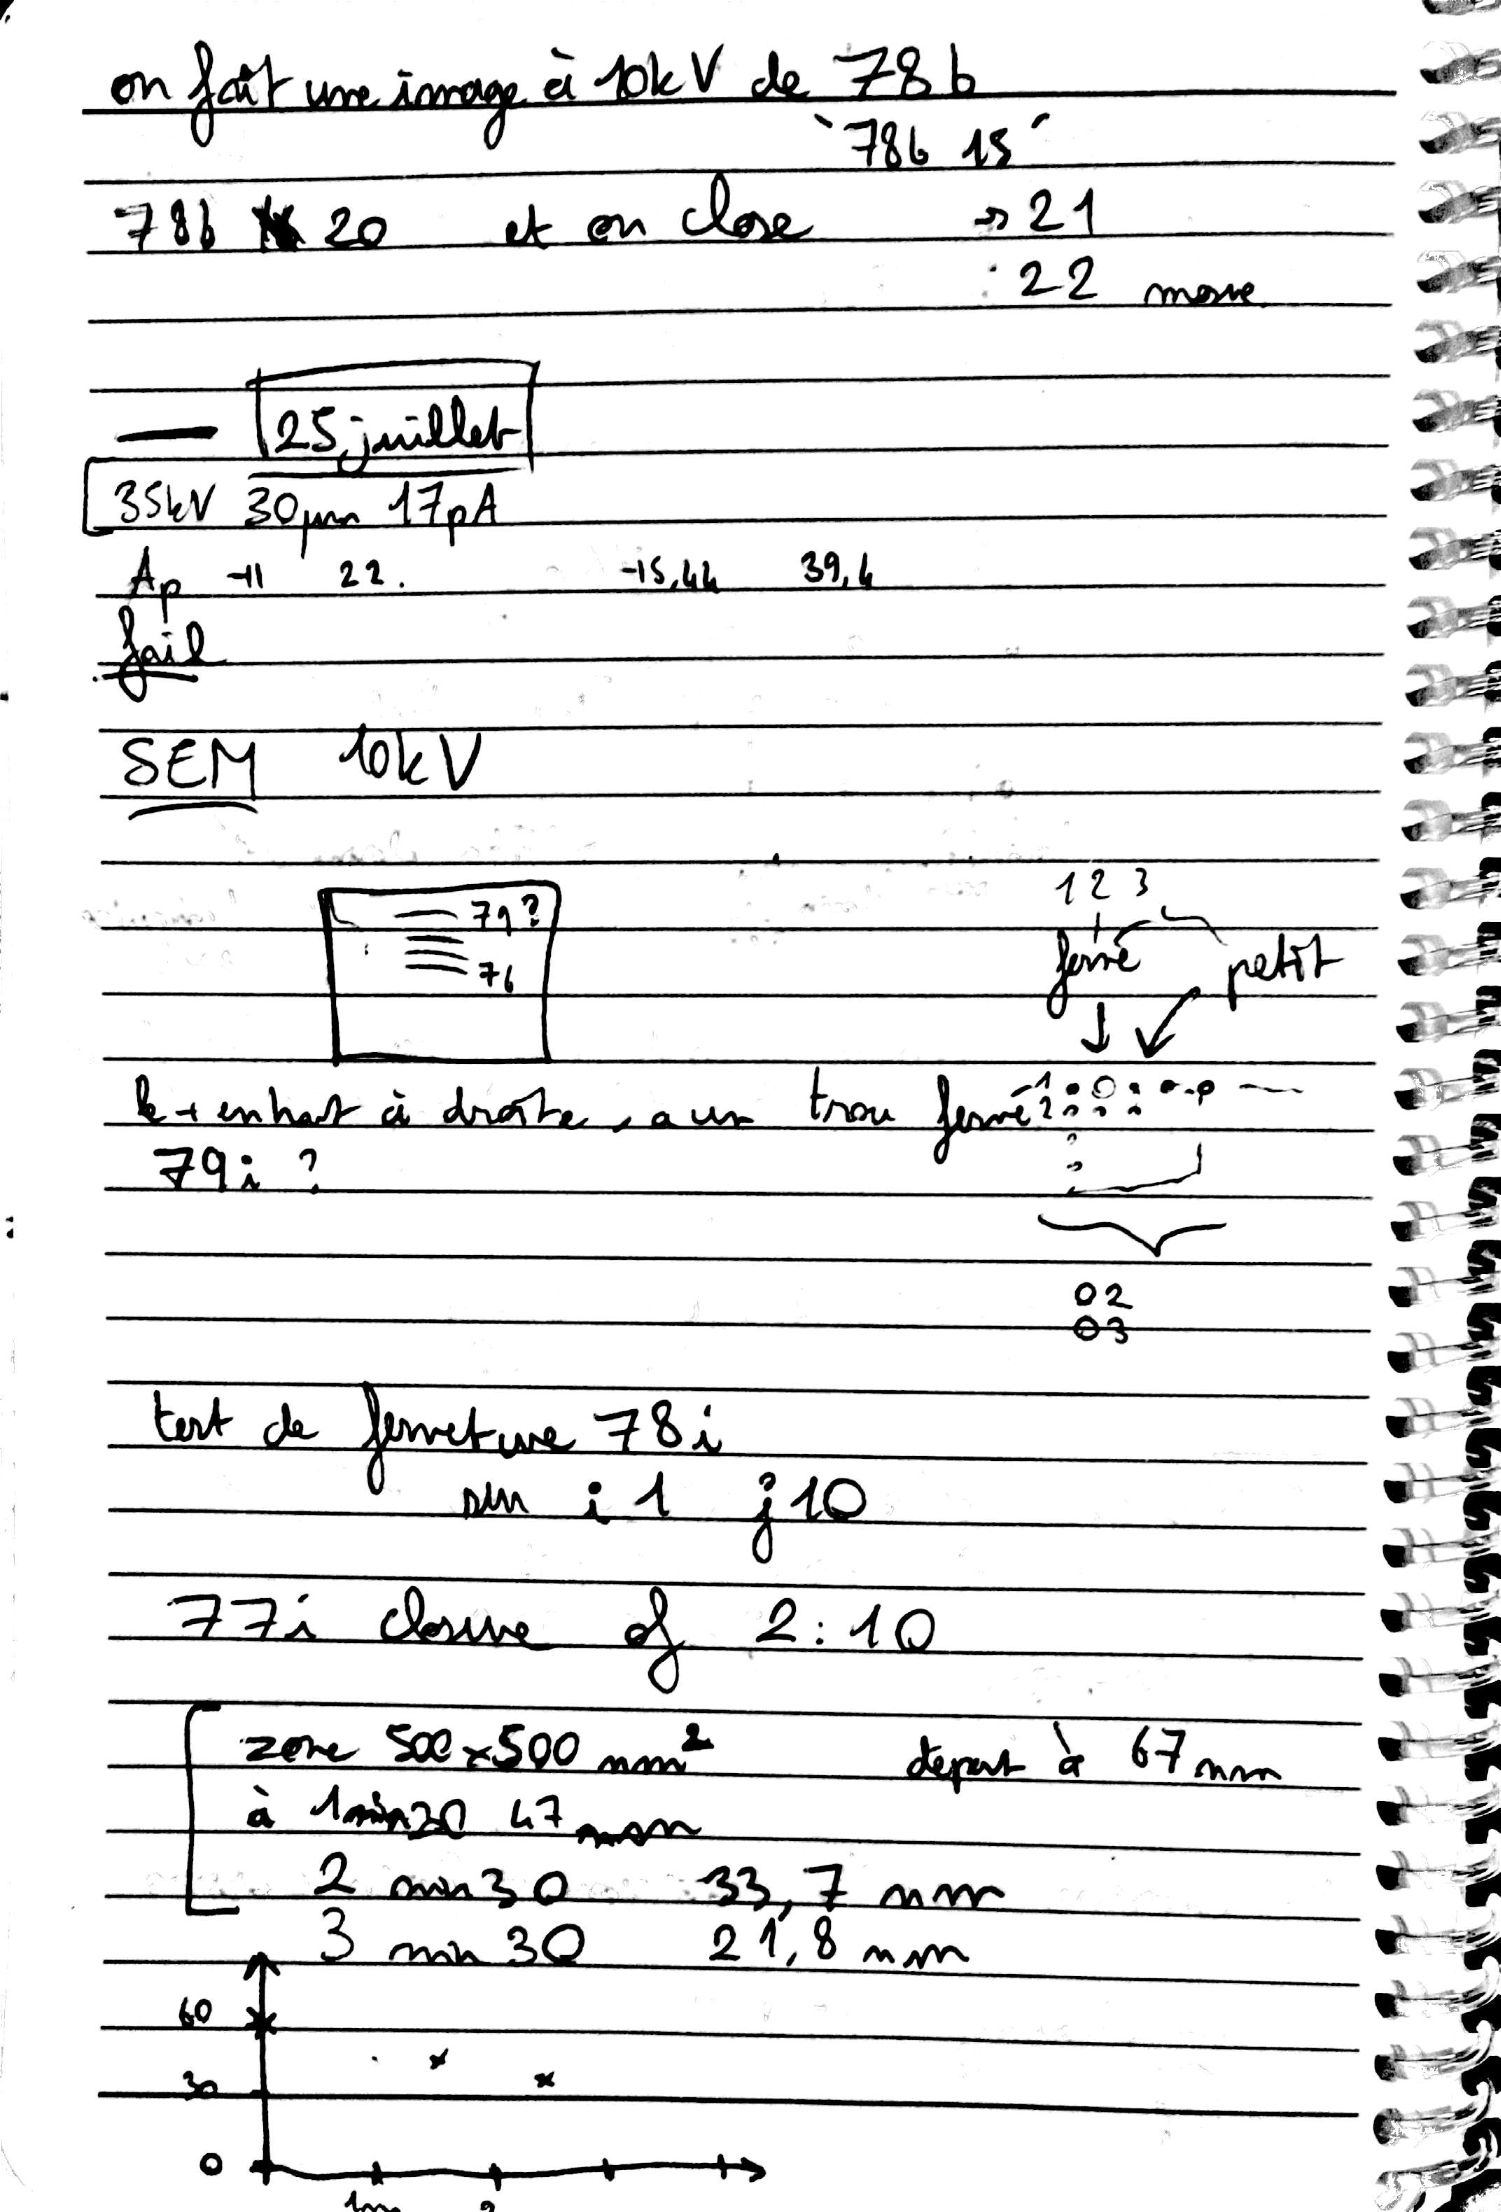 on fait une image à 10kV de 78b
"78b 15"
78b 20 et on close → 21
22 more
25 juillet
35kV 30µm 17pA
Ap -11 22. -15,44 39,4
fail
SEM 10kV
1 2 3
79?
76
fermé petit
le + en haut à droite, a un trou fermé
1
2
79i ?
02
03
test de fermeture 78i
sur i 1 j 10
77i closure of 2:10
zone 500x500 nm² depart à 67 nm
à 1min30 47 nm
2 min 30 33,7 nm
3 min 30 21,8 nm
60
30
0
1m 2